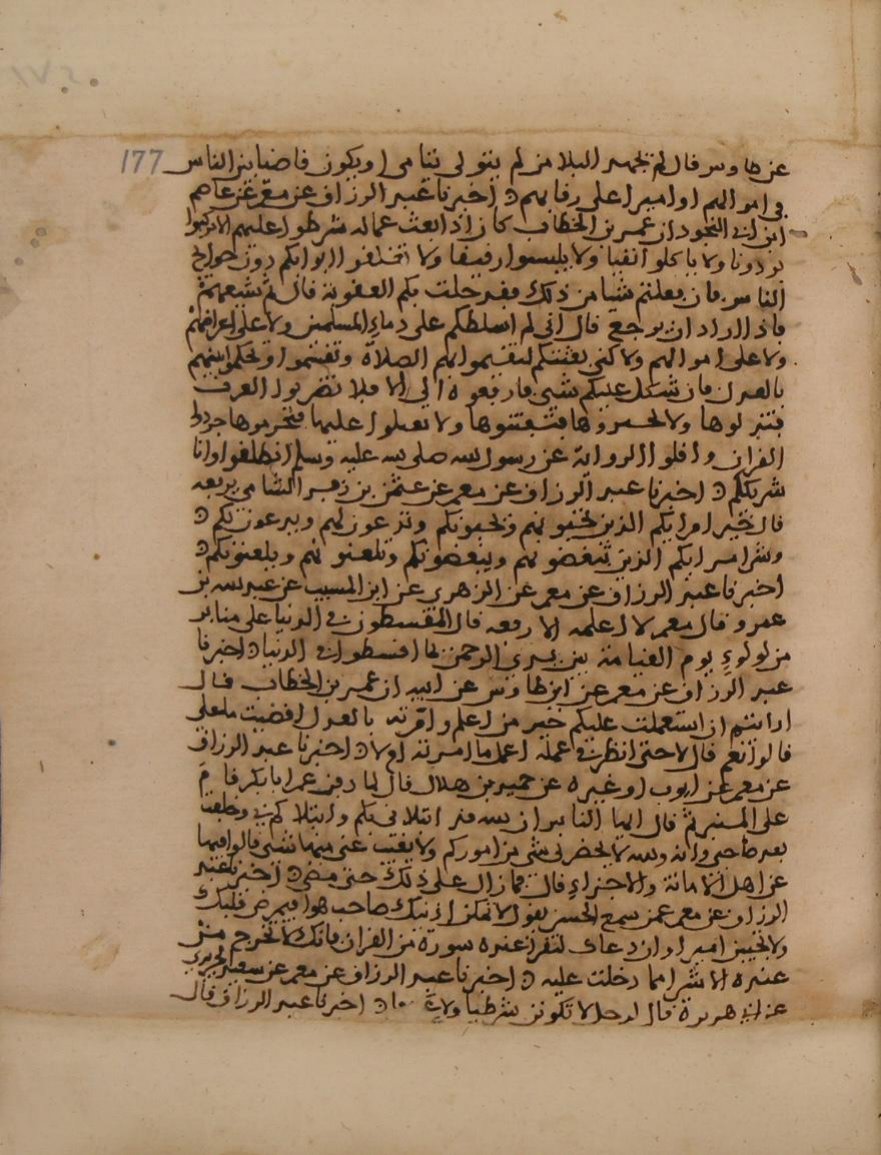 177
عن طاوس قال لم يجهد البلا من لم يتولى يتامى او يكون قاضيا بين الناس
في اموالهم او اميرا على رقابهم اخبرنا عبد الرزاق عن معمر عن عاصم
ابن ابي النجود ان عمر بن الخطاب كان اذا بعث عماله شرط عليهم الا تركبوا
برذونا ولا تاكلوا نقيا ولا تلبسوا رقيقا ولا تغلقوا ابوابكم دون حوايج
الناس فان فعلتم شيا من ذلك فقد حلت بكم العقوبة قال ثم شيعهم
فاذا اراد ان يرجع قال اني لم اسلطكم على دماء المسلمين ولا على اعراضهم
ولا على اموالهم ولاكني بعثتكم لتقيموا بهم الصلاة وتقسموا وتحكموا بينهم
بالعدل فان شكل عليكم شي فارفعوه الي الا فلا تضربوا العرب
فتذلوها ولا تجمروها فتفتنوها ولا تعتلوا عليها فتحرموها جردوا
القران واقلوا الرواية عن رسول الله صلى الله عليه وسلم انطلقوا وانا
شريككم اخبرنا عبد الرزاق عن معمر عن عثمن بن زفر الشامي يرفعه
قال خير امرايكم الذين تحبونهم ويحبونكم وتدعون لهم ويدعون لكم
وشر امرايكم الذين تبغضونهم ويبغضونكم وتلعنونهم ويلعنونكم
اخبرنا عبد الرزاق عن معمر عن الزهري عن ابن المسيب عن عبد الله بن
عمرو قال معمر لا اعلمه الا رفعه قال المقسطون في الدنيا على منابر
من لولوء يوم القيامة بين يدي الرحمن بما اقسطوا في الدنيا اخبرنا
عبد الرزاق عن معمر عن ابن طاوس عن ابيه ان عمر بن الخطاب قال
ارايتم ان استعملت عليكم خير من اعلم وامرته بالعدل اقضيت ما علي
قالوا نعم قال لا حتى انظر في عمله اعمل ما امرته ام لا اخبرنا عبد الرزاق
عن معمر عن ايوب او غيره عن حميد بن هلال قال لما دفن عمر ابا بكر قام
على المنبر ثم قال ايها الناس ان الله قد ابتلاني بكم وابتلاكم بي وخلفت
بعد صاحبي وانه والله لا يحضرني شي من اموركم ولا يغيب عني منها شي فالوا فيها
عن اهل الامانة والاجزاء قال فما زال على ذلك حتى مضى اخبرنا عبد
الرزاق عن معمر عمن سمع الحسن يقول لا تمكن اذنيك صاحب هوا فيمرض قلبك
ولا تجيبن اميرا وان دعاك لتقرا عنده سورة من القران فانك لا تخرج من
عنده الا شرا مما دخلت عليه اخبرنا عبد الرزاق عن معمر عن سعيد الجريري
عن ابي هريرة قال لرجل لا تكونن شرطيا ولا اخبرنا عبد الرزاق قال